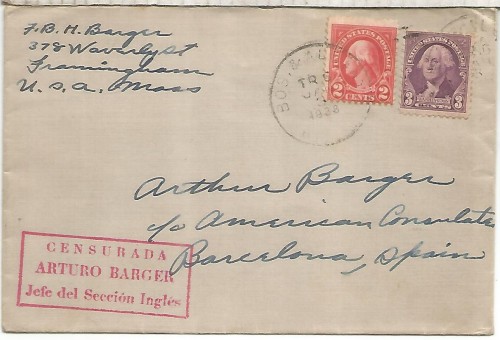 F.B.H. Barger
378 Waverly St
Framingham
U.S.A. Mass
UNITED STATES POSTAGE
2 CENTS 2
UNITED STATES POSTAGE
3 CENTS 3
BOS. &
TR
1938
Arthur Barger
c/o American Consulate
Barcelona, Spain
CENSURADA
ARTURO BARGER
Jefe del Sección Inglés